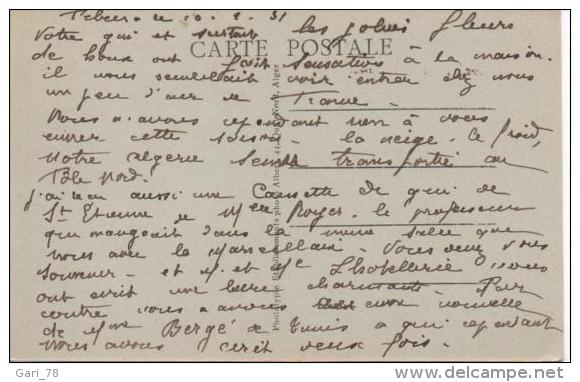 10. 2. 31
Votre gui et surtout les jolies fleurs
CARTE POSTALE
de houx ont fait sensation à la maison.
il nous semblait voir entrer chez nous
un peu d'air de France.
Nous n'avons cependant rien à vous
envier cette saison. la neige, le froid,
notre Algérie semble transportée au
Pôle Nord.
j'ai reçu aussi une Caissette de gui de
St Etienne de Melle Royer. le professeur
qui mangeait dans la même salle que
nous avec la Marseillaise. Vous devez vous
souvenir. et M. et Me Lhotellerie nous
ont écrit une lettre charmante. Par
contre nous n'avons eu nouvelle
de Mme Bergé de Tunis à qui cependant
nous avons écrit deux fois.
Phototypie Etablissements photo Albert, Alger
Gari_78
http://www.delcampe.net